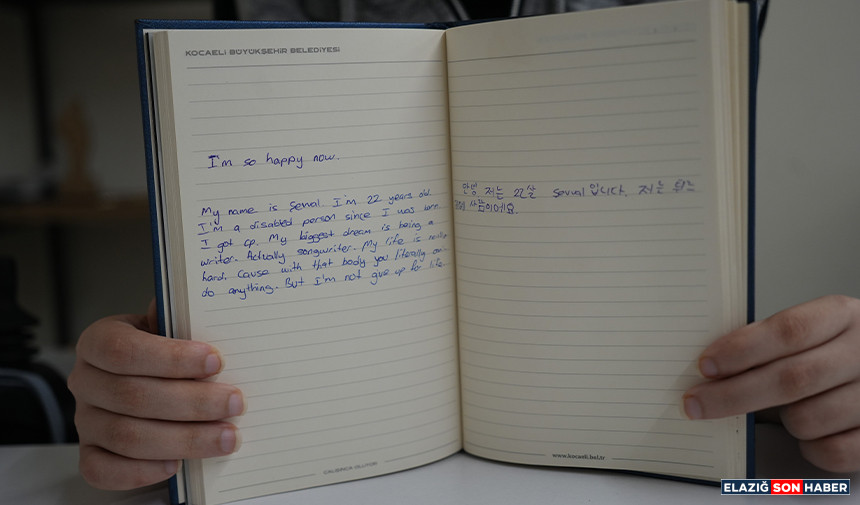 KOCAELİ BÜYÜKŞEHİR BELEDİYESİ
I'm so happy now.
My name is Sevval. I'm 22 years old.
I'm a disabled person since I was born
I got cp. My biggest dream is being a
writer. Actually songwriter. My life is really
hard. Cause with that body you literally can-
do anything. But I'm not give up for life.
ÇALIŞINCA OLUYOR!
안녕 저는 22살 Sevval 입니다. 저는
사람이에요.
www.kocaeli.bel.tr
ELAZIĞ SON HABER